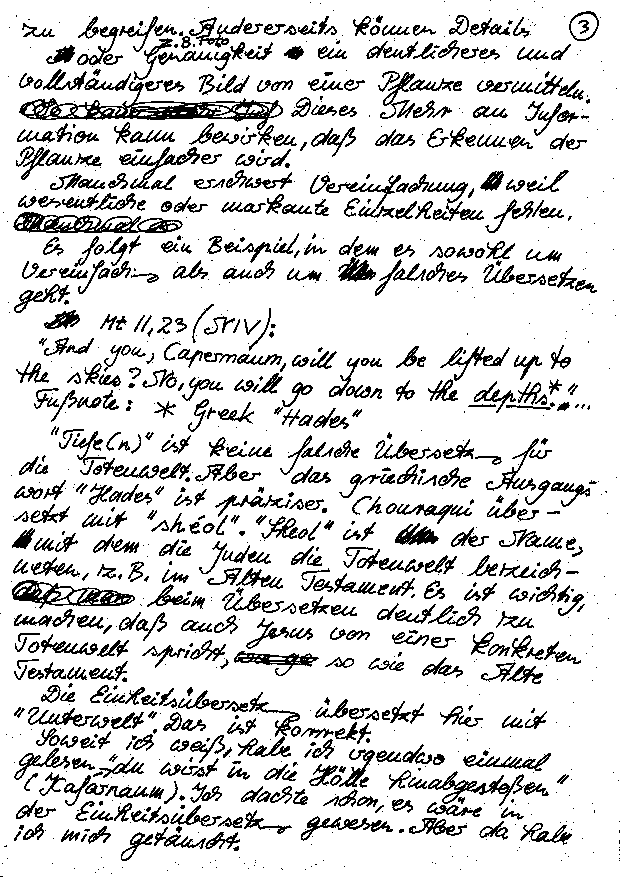 zu begreifen. Andererseits können Details
3
z.B. Foto
oder Genauigkeit ein deutlicheres und
vollständigeres Bild von einer Pflanze vermitteln.
Dieses Mehr an Infor-
mation kann bewirken, daß das Erkennen der
Pflanze einfacher wird.
Manchmal erschwert Vereinfachung, weil
wesentliche oder markante Einzelheiten fehlen.
Es folgt ein Beispiel, in dem es sowohl um
Vereinfach als auch um falsches Übersetzen
geht.
Mt 11,23 (NIV):
"And you, Capernaum, will you be lifted up to
the skies? No, you will go down to the depths.*"...
Fußnote: * Greek "Hades"
"Tiefe(n)" ist keine falsche Übersetz für
die Totenwelt. Aber das griechische Ausgangs
wort "Hades" ist präziser. Chouraqui über-
setzt mit "shéol". "Sheol" ist der Name,
mit dem die Juden die Totenwelt bezeich-
neten, z.B. im Alten Testament. Es ist wichtig,
beim Übersetzen deutlich zu
machen, daß auch Jesus von einer konkreten
Totenwelt spricht, so wie das Alte
Testament.
Die Einheitsübersetz übersetzt hier mit
"Unterwelt". Das ist korrekt.
Soweit ich weiß, habe ich irgendwo einmal
gelesen "du wirst in die Hölle hinabgestoßen"
(Kafarnaum). Ich dachte schon, es wäre in
der Einheitsübersetz gewesen. Aber da habe
ich mich getäuscht.